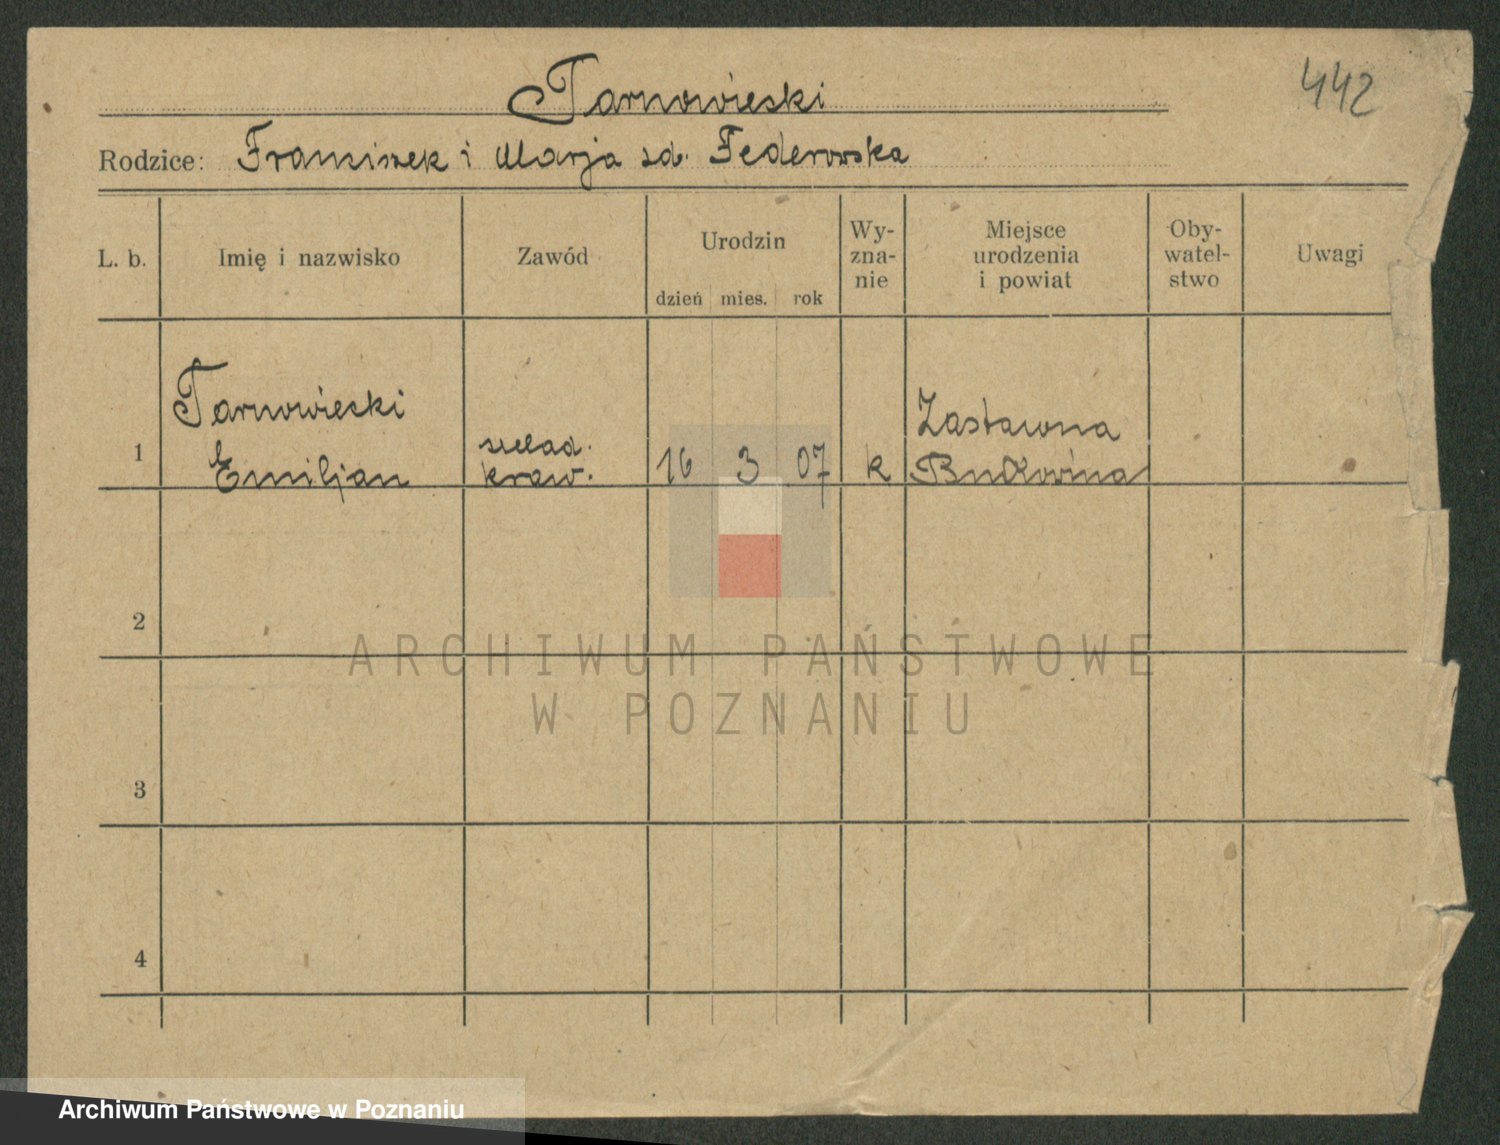 442
Tarnowiecki
Rodzice: Franciszek i Marja zd. Federowska
L. b. Imię i nazwisko Zawód Urodzin dzień mies. rok Wy-zna-nie Miejsce urodzenia i powiat Oby-watel-stwo Uwagi
Tarnowiecki Zastawna
1 Emiljan kraw. 16 3 07 k Bukowina
2
3
4
ARCHIWUM PAŃSTWOWE
W POZNANIU
Archiwum Państwowe w Poznaniu